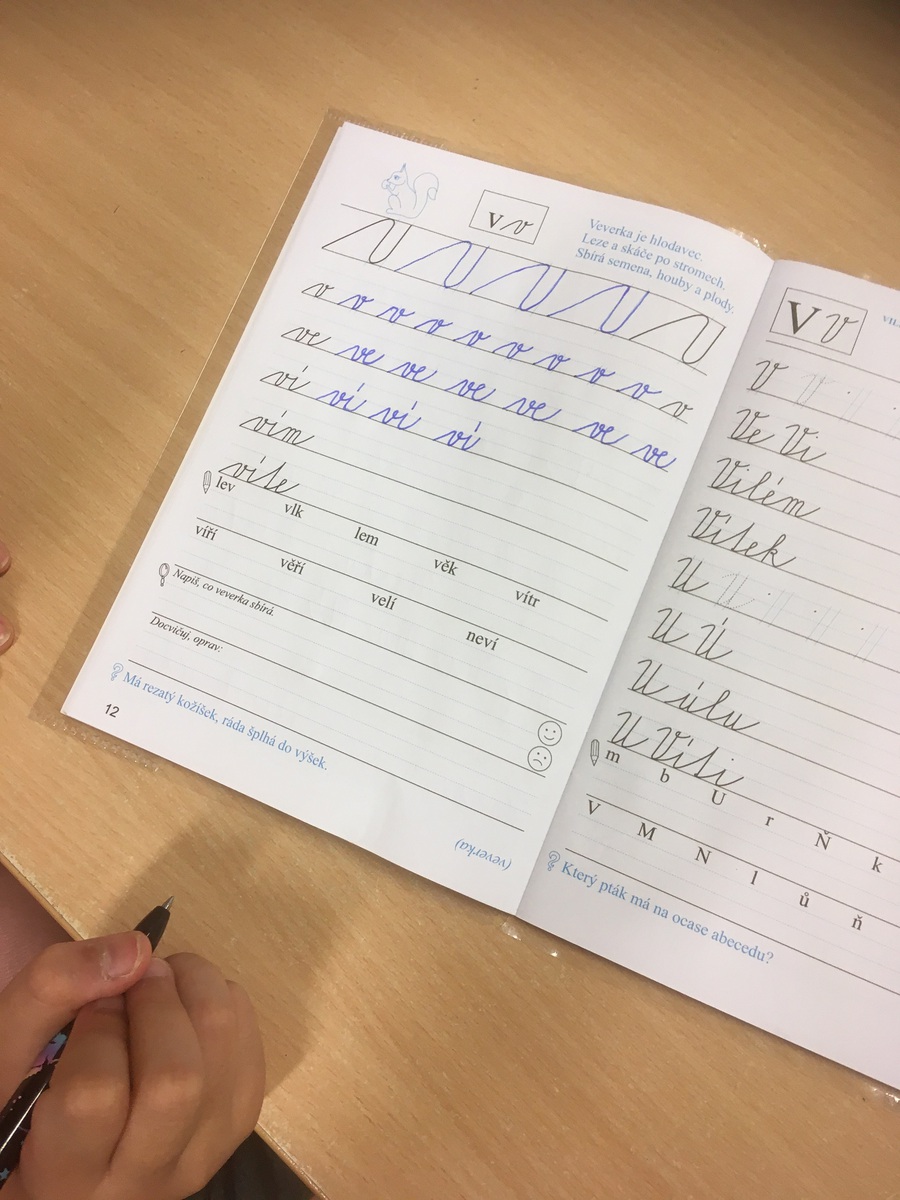 V v
Veverka je hlodavec.
Leze a skáče po stromech.
Sbírá semena, houby a plody.
v v v v v v v v v v
ve ve ve ve ve ve ve
ví ví ví ví
vím
víte
lev vlk lem věk vítr
víří věří velí neví
Napiš, co veverka sbírá.
Docvičuj, oprav:
Má rezatý kožíšek, ráda šplhá do výšek.
(veverka)
12
V v
V
Ve Vi
Vilém
Vítek
U
U Ú
U úlu
U Víti
m b U r Ň k
V M N l ů ň
Který pták má na ocase abecedu?